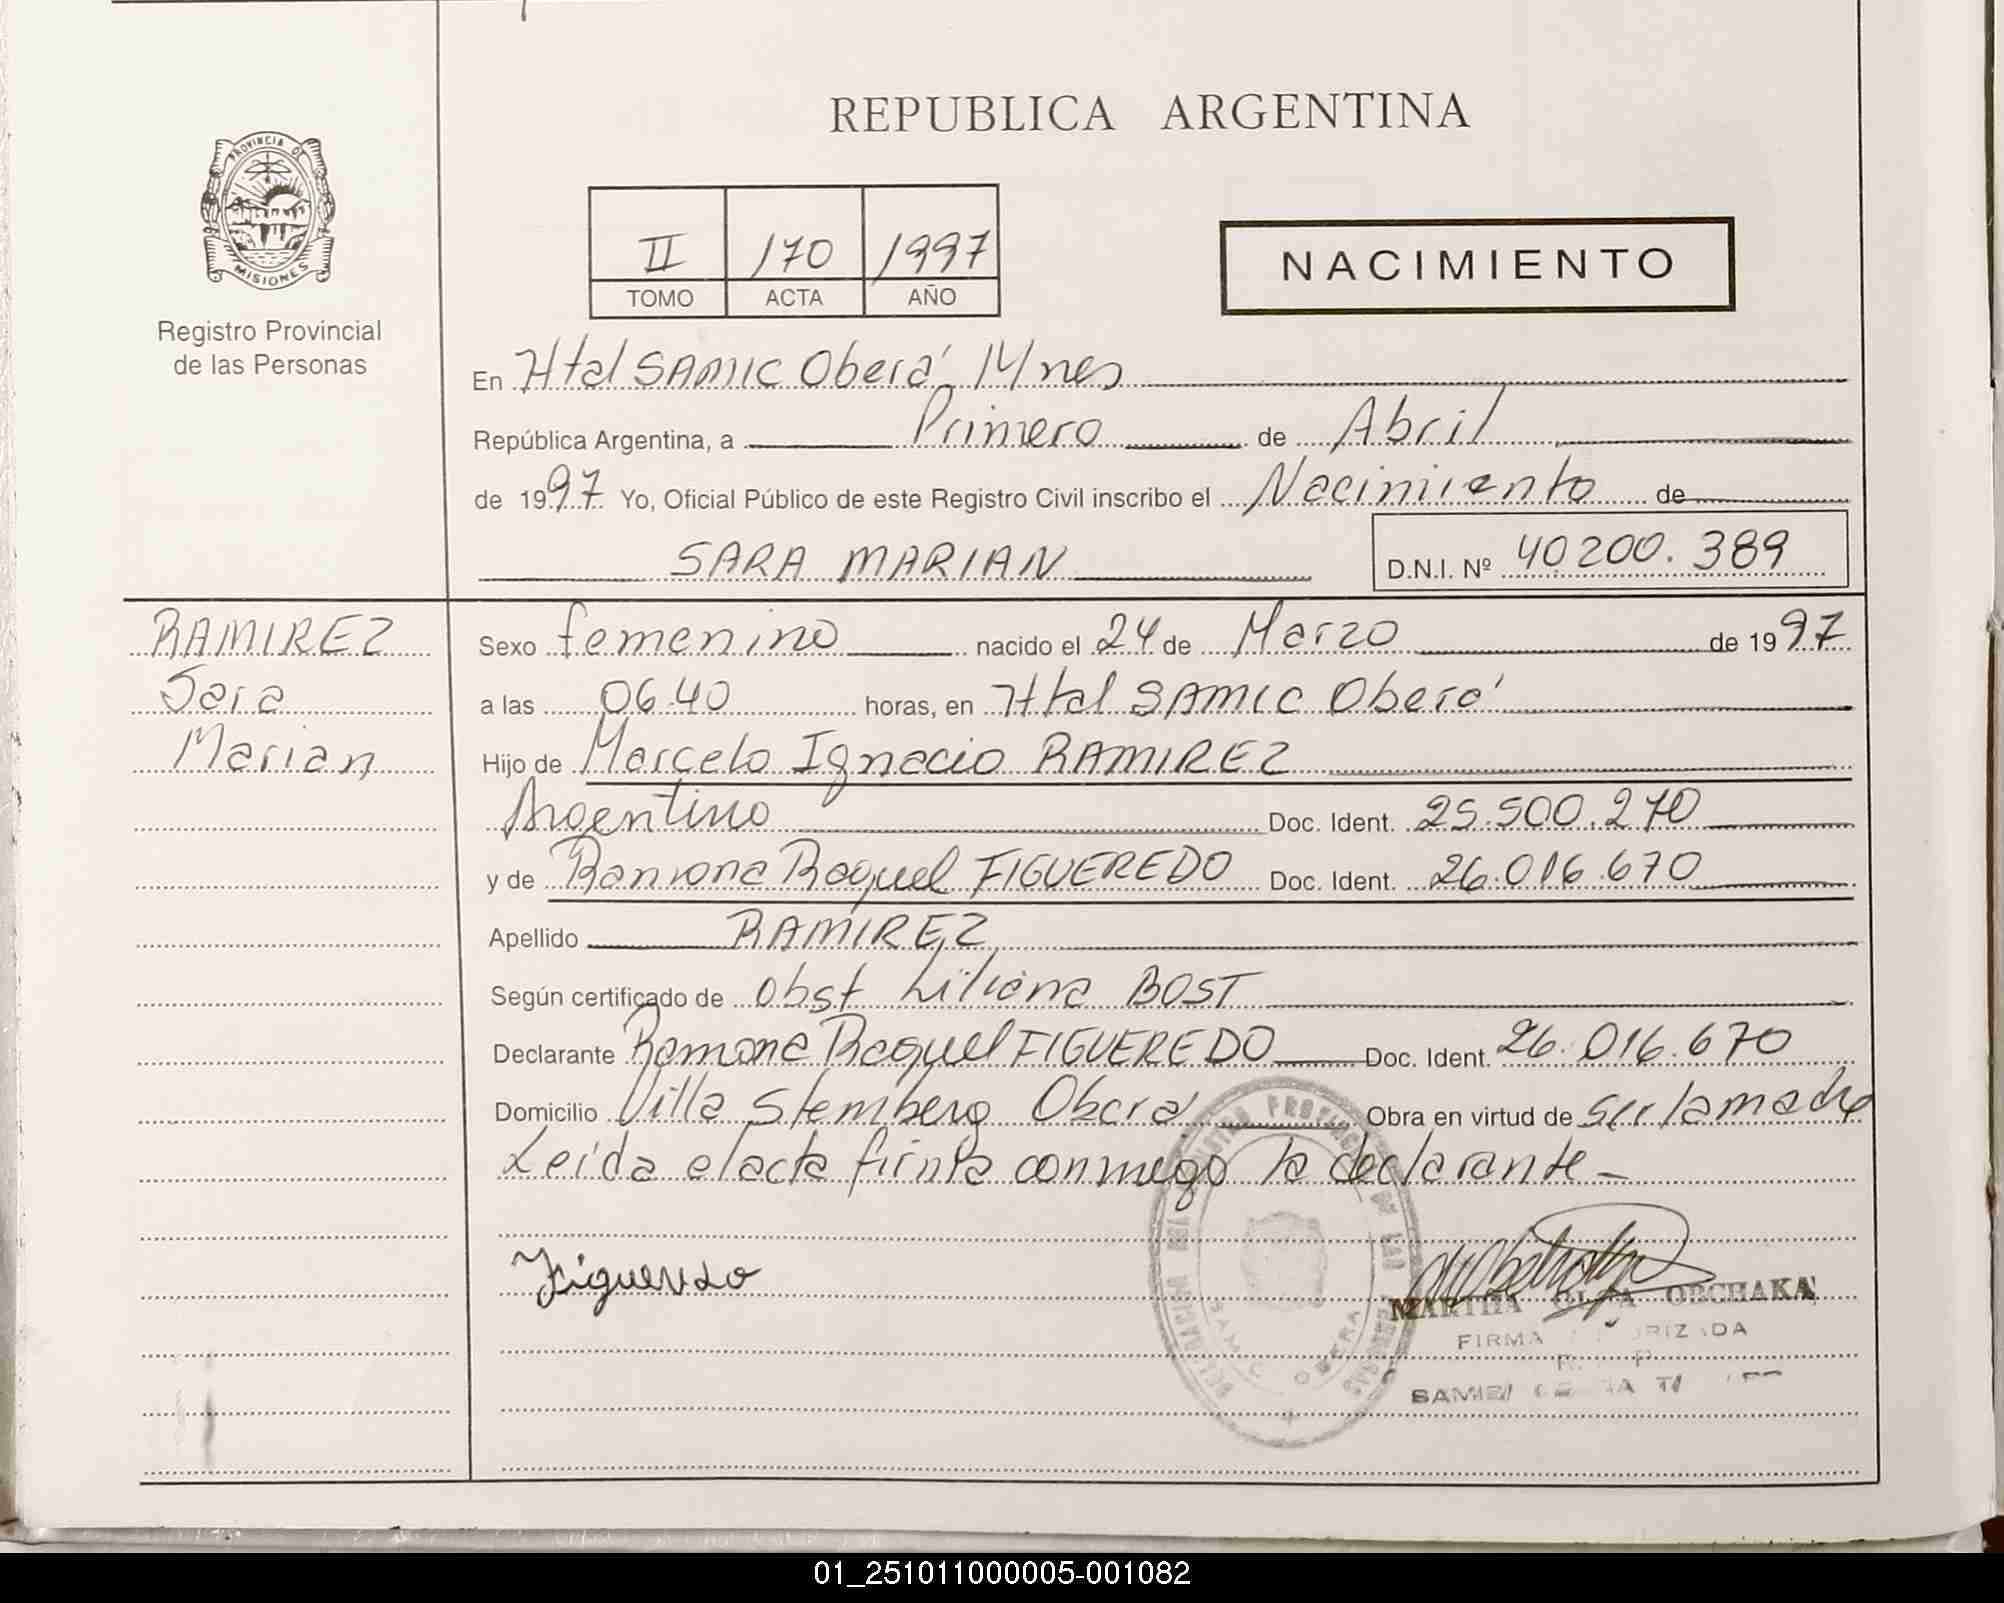 REPUBLICA ARGENTINA
PROVINCIA DE
MISIONES
Registro Provincial
de las Personas
II 170 1997
TOMO ACTA AÑO
NACIMIENTO
En Htal SAMIC Oberá, Mnes
República Argentina, a Primero de Abril
de 1997 Yo, Oficial Público de este Registro Civil inscribo el Nacimiento de
SARA MARIAN D.N.I. Nº 40200.389
RAMIREZ
Sara
Marian
Sexo femenino nacido el 24 de Marzo de 1997
a las 06.40 horas, en Htal SAMIC Oberá
Hijo de Marcelo Ignacio RAMIREZ
Argentino Doc. Ident. 25.500.270
y de Ramona Raquel FIGUEREDO Doc. Ident. 26.016.670
Apellido RAMIREZ
Según certificado de Obst Liliana BOST
Declarante Ramona Raquel FIGUEREDO Doc. Ident. 26.016.670
Domicilio Villa Stemberg Oberá Obra en virtud de ser la madre
Leída el acta firma conmigo la declarante -
Figueredo
MARTHA OLGA OBCHAKA
FIRMA AUTORIZADA
01_251011000005-001082